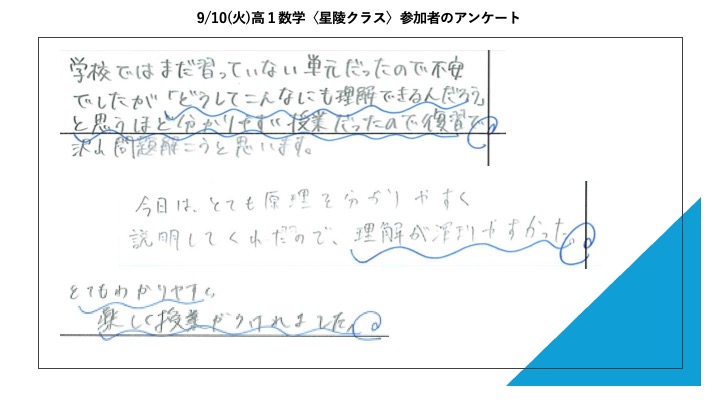 9/10(火)高1数学〈星陵クラス〉参加者のアンケート
学校ではまだ習っていない単元だったので不安
でしたが「どうしてこんなにも理解できるんだろう」
と思うほど分かりやすい授業だったので復習で
沢山問題解こうと思います。
今日は、とても原理を分かりやすく
説明してくれたので、理解が深まりやすかった。
とてもわかりやすく
楽しく授業がうけれました。